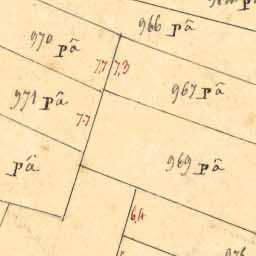 966 pâ
970 pâ
7,7 7,3
967 pâ
971 pâ
7.7
969 pâ
pâ
6,4